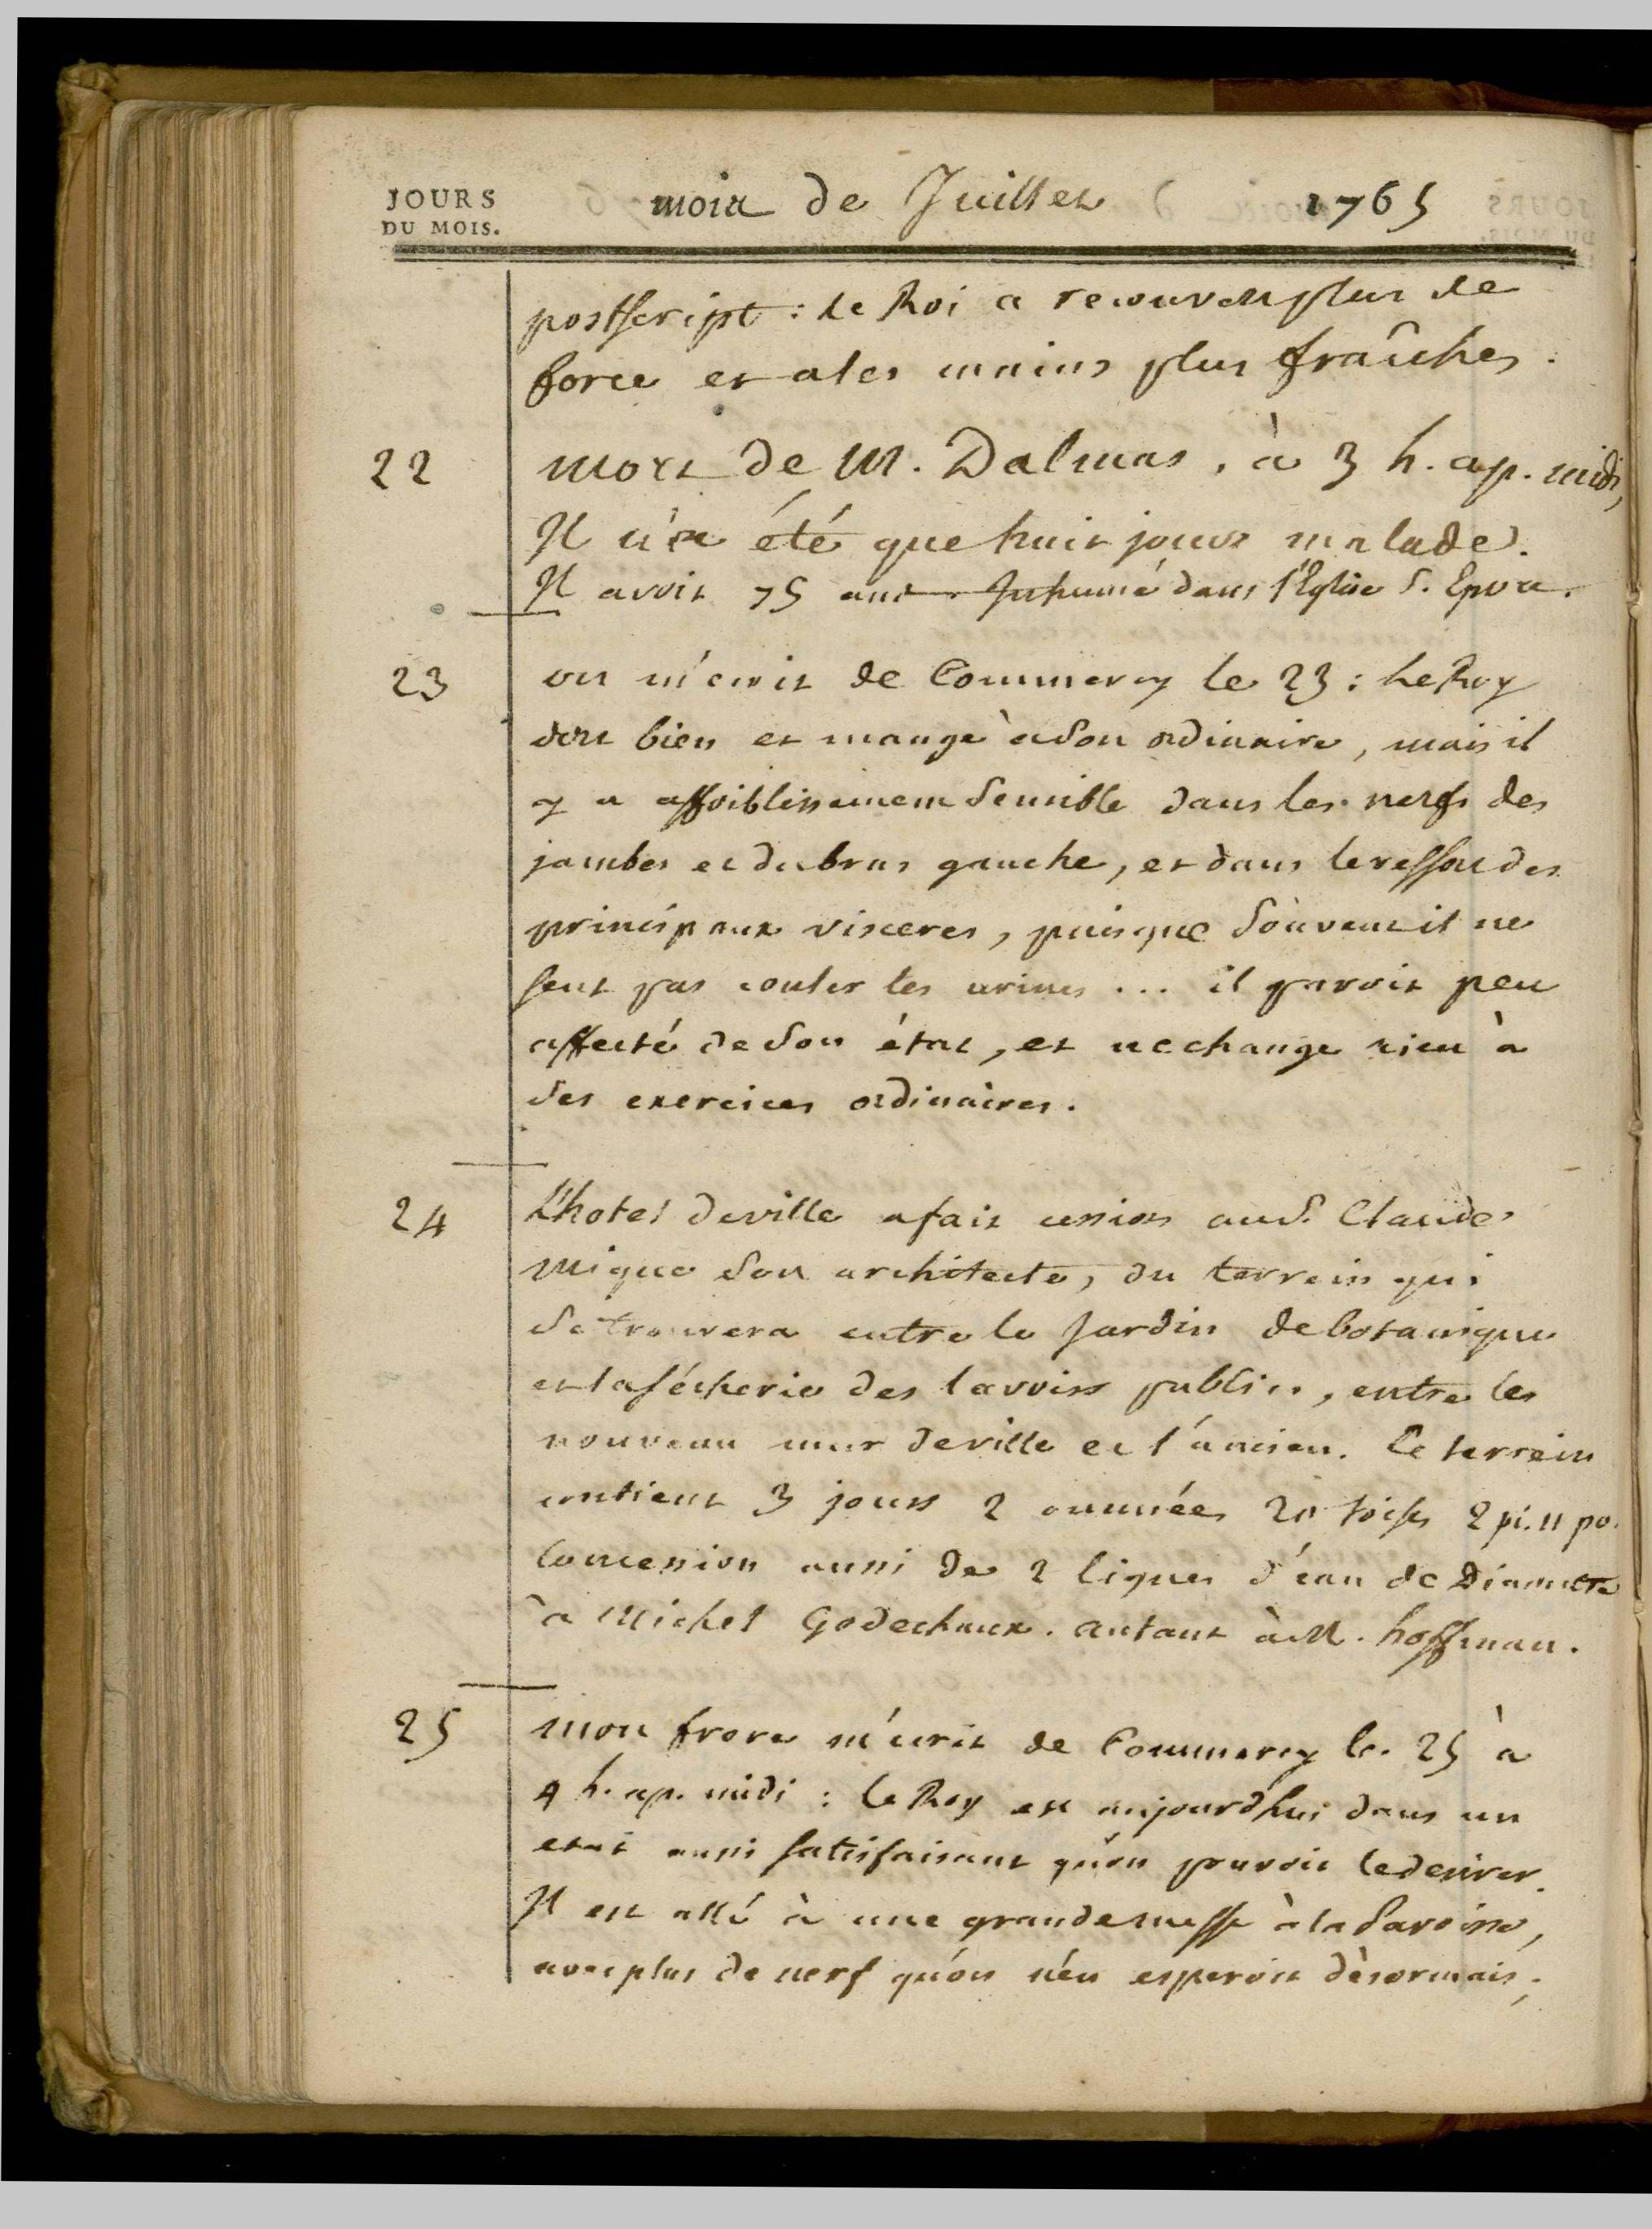 JOURS
DU MOIS.
mois de Juillet 1765
postscript : le Roi a recouvert plus de
force et a les mains plus fraîches.
22 mort de M. Dalmas, à 3 h. ap. midi,
Il n'a été que huit jours malade.
Il avoit 75 ans. Inhumé dans l'Eglise S. Epvre.
23 on m'écrit de Commercy le 23 : le Roy
dort bien et mange à son ordinaire, mais il
y a affoiblissement sensible dans les nerfs des
jambes et du bras gauche, et dans le ressort des
principaux visceres, puisque souvent il ne
sent pas couler les urines ... il paroit peu
affecté de son état, et ne change rien à
ses exercices ordinaires.
24 L'hotel de ville a fait cession au S. Claude
Mique son architecte, du terrein qui
se trouvera entre le Jardin de botanique
et la sécherie des lavoirs publics, entre les
nouveau mur de ville et l'ancien. Ce terrein
contient 3 jours 2 ommées 20 toises 2 pi. 11 po.
Concession aussi de 2 lignes d'eau de Diametre
à Michel Godechaux. autant à M. hoffman.
25 mon frere m'écrit de Commercy le 25 à
4 h. ap. midi : le Roy est aujourdhui dans un
etat aussi satisfaisant qu'on pouvoit le desirer.
Il est allé à une grande messe à la Paroisse,
avec plus de nerf qu'on n'en esperoit désormais ;